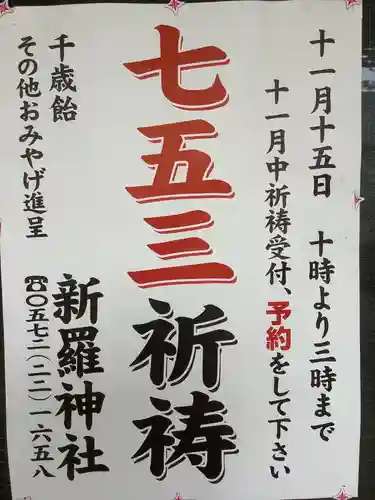 十一月十五日 十時より三時まで
十一月中祈祷受付、予約をして下さい
七五三祈祷
千歳飴
その他おみやげ進呈
新羅神社
☎〇五七二(二二)一六五八